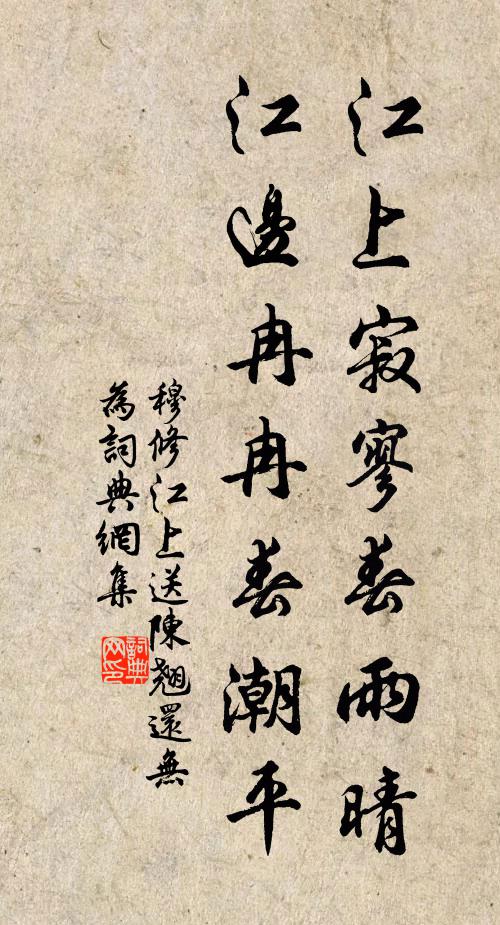 江上寂寥春雨晴
江邊冉冉春潮平
穆修江上送陳翹還無
為詞典網集
詞典
网印